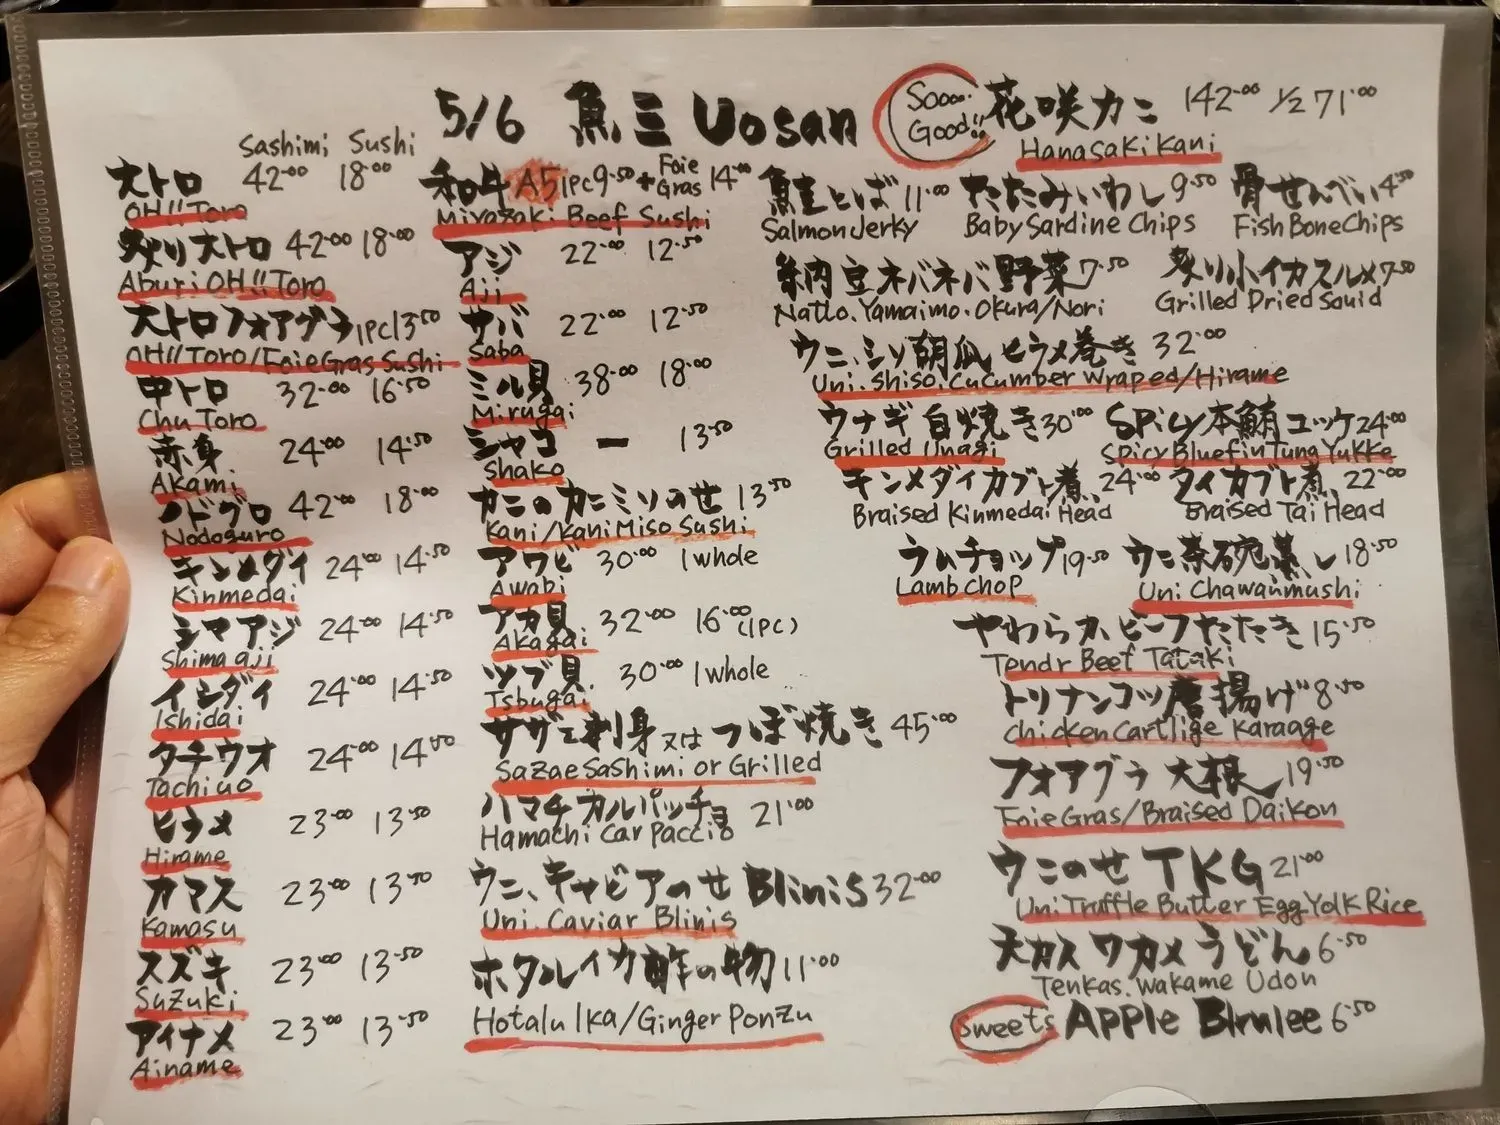 5/6 魚三 Uosan
Soooo.
Good!!
花咲カニ 142.00 1/2 71.00
Hanasaki Kani
Sashimi Sushi
大トロ 42.00 18.00
OH!! Toro
炙り大トロ 42.00 18.00
Aburi OH!! Toro
大トロフォアグラ 1PC 13.50
OH!! Toro/Foie Gras Sushi
中トロ 32.00 16.50
Chu Toro
赤身 24.00 14.50
Akami
ノドグロ 42.00 18.00
Nodoguro
キンメダイ 24.00 14.50
Kinmedai
シマアジ 24.00 14.50
Shima aji
イシダイ 24.00 14.50
Ishidai
タチウオ 24.00 14.50
Tachiuo
ヒラメ 23.00 13.50
Hirame
カマス 23.00 13.50
Kamasu
スズキ 23.00 13.50
Suzuki
アイナメ 23.00 13.50
Ainame
和牛 A5 1PC 9.50 + Foie Gras 14.00
Miyazaki Beef Sushi
アジ 22.00 12.50
Aji
サバ 22.00 12.50
Saba
ミル貝 38.00 18.00
Mirugai
シャコ ー 13.50
Shako
カニのカニミソのせ 13.50
Kani/Kani Miso Sushi
アワビ 30.00 1 whole
Awabi
アカ貝 32.00 16.00 (1PC)
Akagai
ツブ貝 30.00 1 whole
Tsbugai
サザエ刺身又はつぼ焼き 45.00
Sazae Sashimi or Grilled
ハマチカルパッチョ 21.00
Hamachi Carpaccio
ウニ、キャビアのせ Blinis 32.00
Uni. Caviar Blinis
ホタルイカ酢の物 11.00
Hotalu Ika/Ginger Ponzu
鮭とば 11.00 たたみいわし 9.50 骨せんべい 4.50
Salmon Jerky Baby Sardine Chips Fish Bone Chips
納豆ネバネバ野菜 7.50 炙り小イカスルメ 7.50
Natto. Yamaimo. Okura/Nori Grilled Dried Squid
ウニ、シソ胡瓜ヒラメ巻き 32.00
Uni. Shiso. Cucumber Wraped/Hirame
ウナギ白焼き 30.00 SPicy本鮪ユッケ 24.00
Grilled Unagi Spicy Bluefin Tuna Yukke
キンメダイカブト煮 24.00 タイカブト煮 22.00
Braised Kinmedai Head Braised Tai Head
ラムチョップ 19.50 ウニ茶碗蒸し 18.50
Lamb Chop Uni Chawanmushi
やわらかビーフたたき 15.50
Tendr Beef Tataki
トリナンコツ唐揚げ 8.50
Chicken Cartlige Karaage
フォアグラ大根 19.50
Foie Gras/Braised Daikon
ウニのせ TKG 21.00
Uni Truffle Butter Egg Yolk Rice
天カスワカメうどん 6.50
Tenkas. Wakame Udon
Sweets Apple Blrulee 6.50